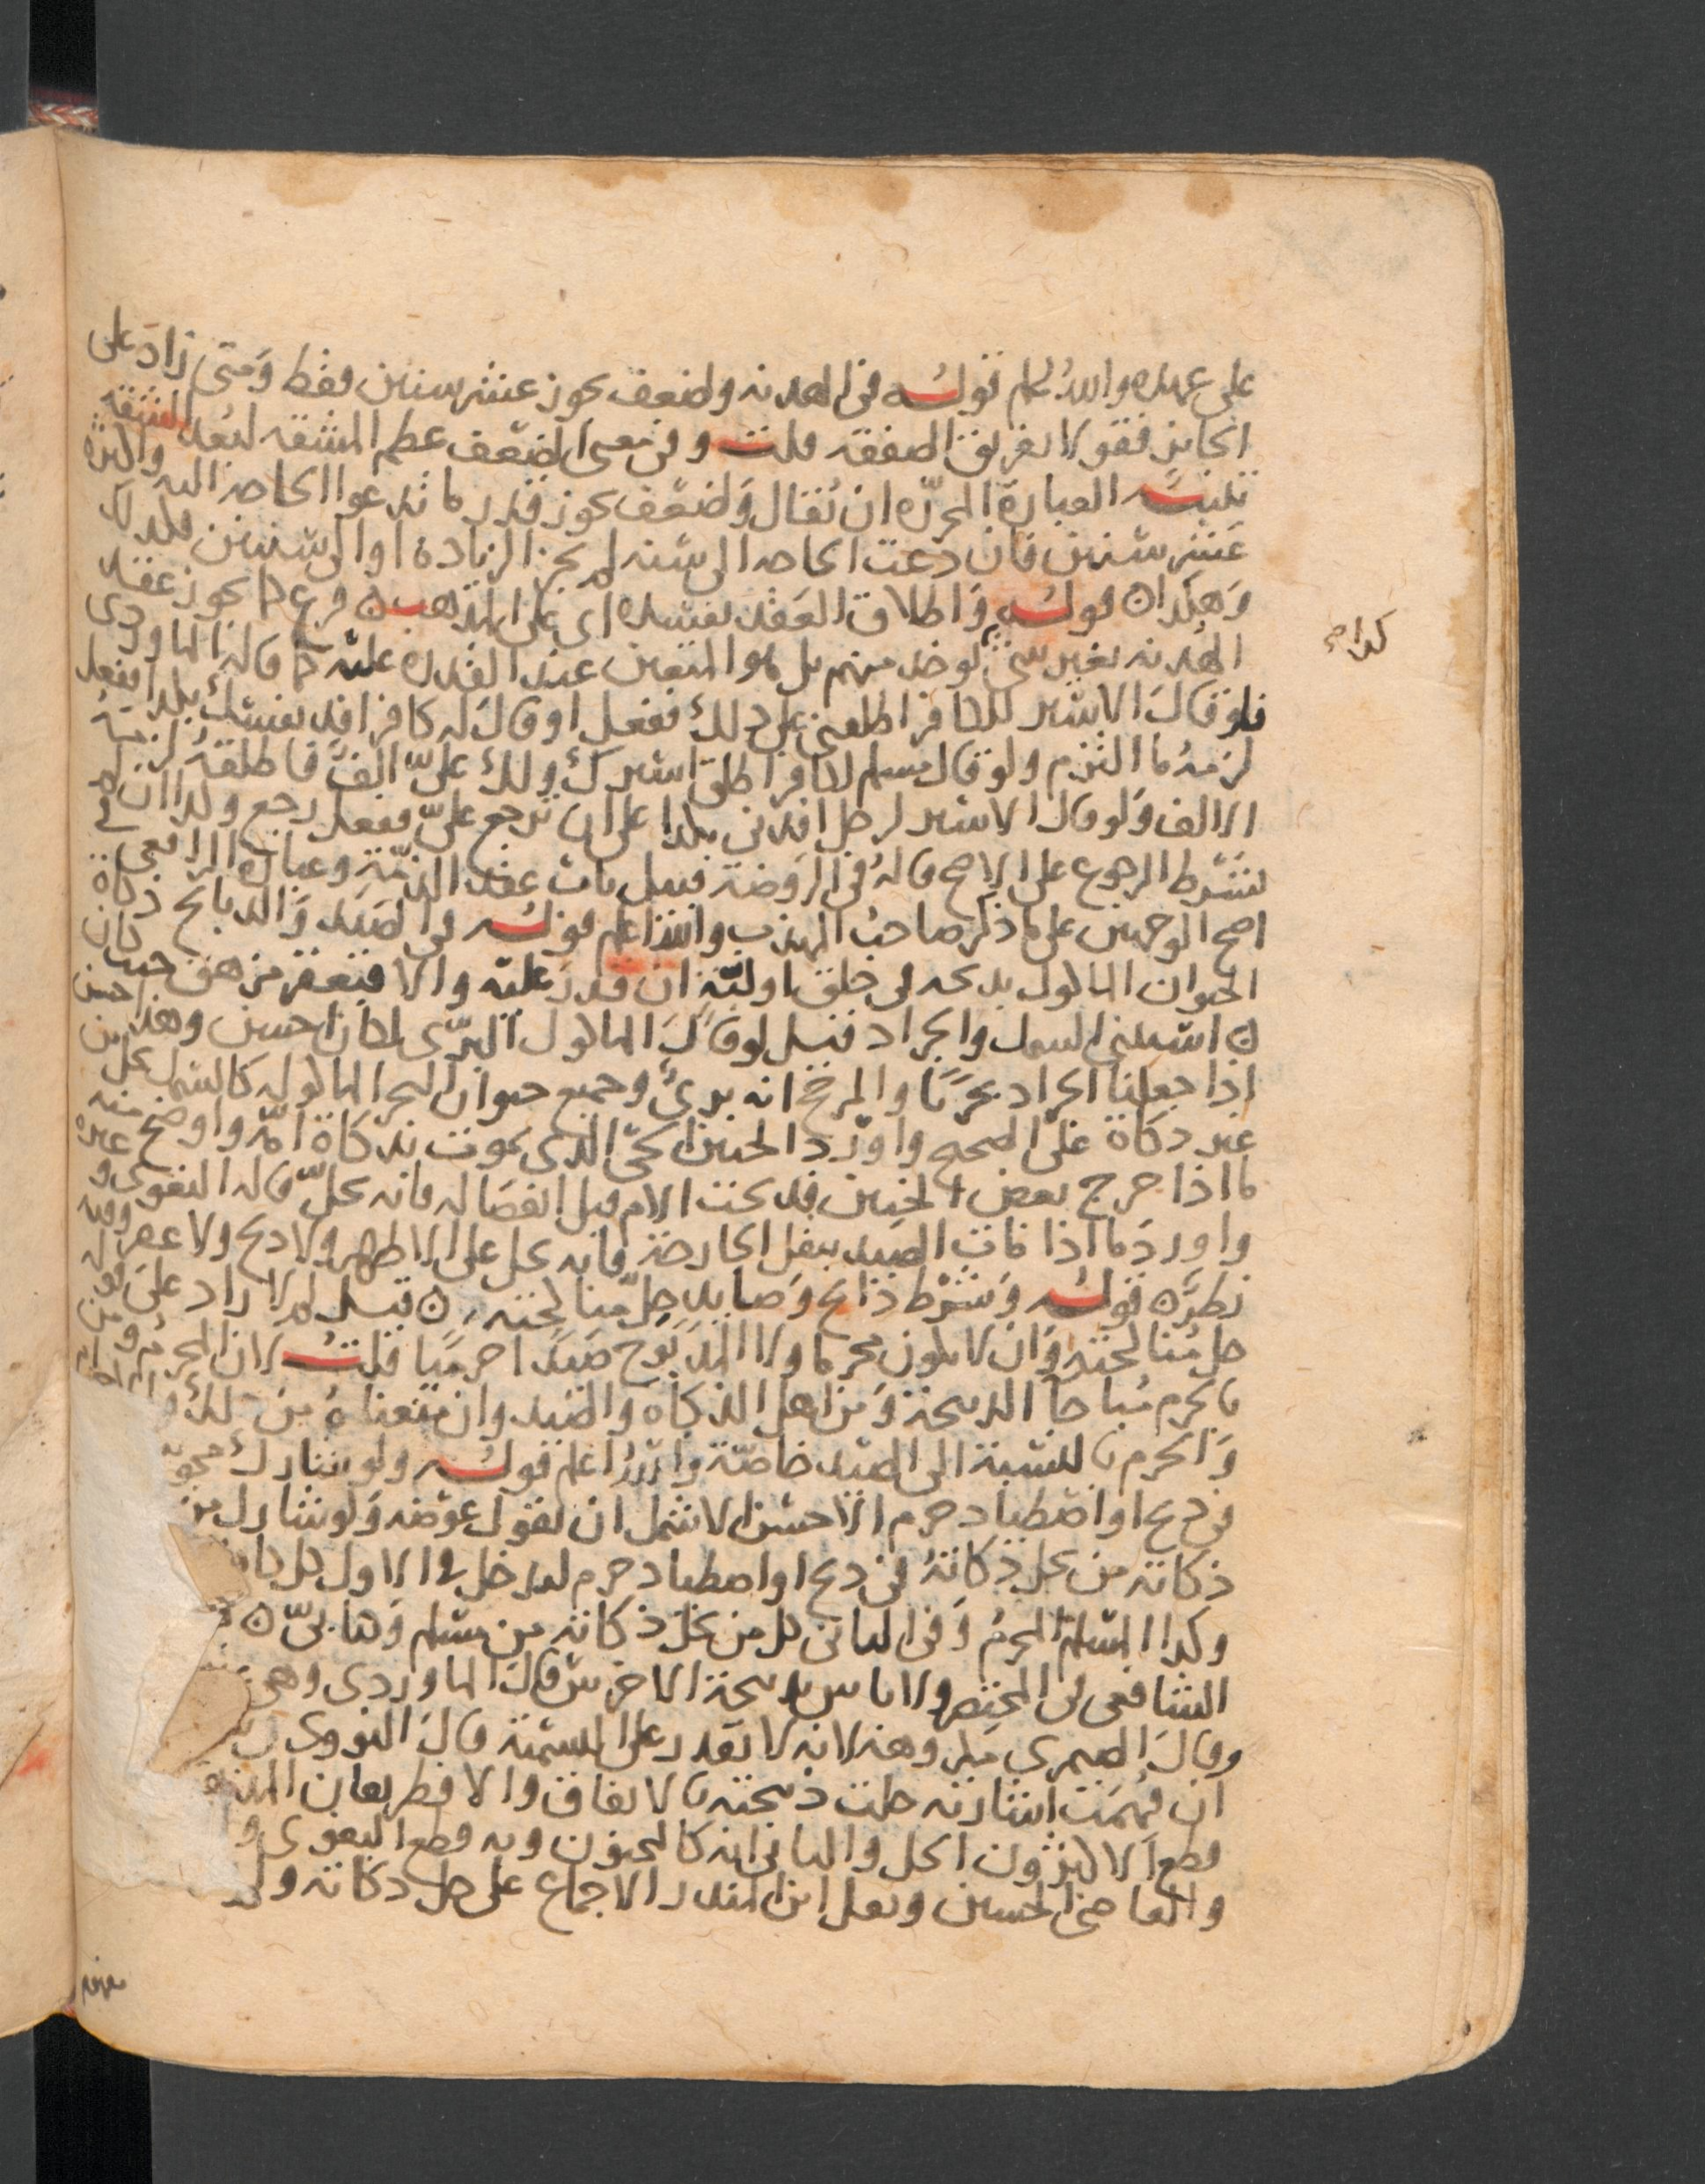 على عمده والله اعلم قوله في الهدنة ولضعف يجوز عشر سنين فقط ومتى زاد على
الجايز فقولا تفريق الصفقة قلت وفي معنى الضعف عظم المشقة لبعد الشقة
تنبيه العبارة المحررة ان يقال ولضعف يجوز قدر ما تدعوا الحاجة اليه واكثره
عشر سنين فان دعت الحاجة الى سنة لم يجز الزيادة او الى سنتين فكذلك
وهكذا قوله واطلاق العقد يفسده اي على المذهب فرع كما يجوز عقد
الهدنة بغير شي يوخذ منهم بل هو المتعين عند القدرة عليه كما قاله الماوردي
فلو قال الاسير للكافر اطلقني على ذلك ففعل او قال له كافر افد نفسك بكذا ففعل
لزمه ما التزم ولو قال مسلم لكافر اطلق اسيرك ولك علي الف فاطلقه لزمه
الالف ولو قال الاسير لرجل افدني بكذا على ان ترجع علي ففعل رجع وكذا ان لم
يشترط الرجوع على الاصح قاله في الروضة قبيل باب عقد الذمة وعبارة الرافعي في
اصح الوجهين على ما ذكر صاحب المهذب والله اعلم قوله في الصيد والذبايح ذكاة
الحيوان الماكول بذبحه في حلق او لبة ان قدر عليه والا فبعقر مزهق حيث كان
استثنى السمك والجراد قيل لو قال الماكول البري لكان احسن وهذا حسن
اذا جعلنا الجراد بحريا والمرجح انه بري وجميع حيوان البحر الماكوله كالسمك يحل من
غير ذكاة على الصحيح واورد الجنين الحي الذي يموت بذكاة امه واوضح منه
ما اذا خرج بعض الجنين فذبحت الام قبل انفصاله فانه يحل قاله البغوي وغيره
واورد ما اذا مات الصيد بثقل الجارحة فانه يحل على الاظهر ولا ذبح ولا عقر وفيه
نظر قوله وشرط ذابح وصايد حل مناكحته قيل لم لا زاد على قوله
حل مناكحته وان لا يكون محرما ولا المذبوح صيدا حرميا قلت لان المحرم ومن
بالحرم مباحا الذبيحة ومن اهل الذكاة والصيد وان منعناه من ذلك
والحرم بالنسبة الى الصيد خاصة والله اعلم قوله ولو شارك مجوسي
في ذبح او اصطياد حرم الاحسن الاشمل ان يقول عوضه ولو شارك من
ذكاته من يحل ذكاته في ذبح او اصطياد حرم ليدخل في الاول كل
وكذا المسلم المحرم وفي الثاني كل من يحل ذكاته من مسلم وكتابي
الشافعي في المختصر ولا باس بذبيحة الاخرس قال الماوردي وهي
وقال الصيمري مكروهة لانه لا يقدر على التسمية قال النووي
ان فهمت اشارته حلت ذبيحته بالاتفاق والا فطريقان المذهب
قطع الاكثرون الحل والثاني انه كالمجنون وبه قطع البغوي و
والقاضي الحسين ونقل ابن المنذر الاجماع على حل ذكاته
كذا صح